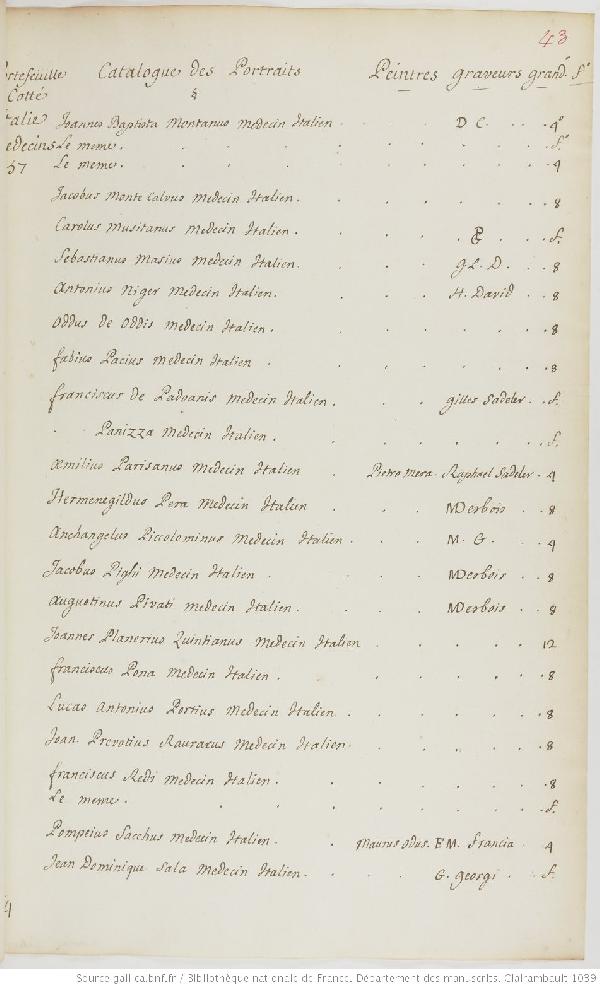 43
Catalogue des Portraits Peintres graveurs grandr
Cotté 4
Joannes Baptista Montanus Medecin Italien D C 4º
Le meme. fº
57 Le meme. 4
Jacobus Monte Calvus Medecin Italien. 8
Carolus Musitanus Medecin Italien. f.
Sebastianus Masius Medecin Italien. g L. D. 8
Antonius Niger Medecin Italien. H. David 8
Oddus de Oddis Medecin Italien. 8
fabius Pacius Medecin Italien 8
franciscus de Padoanis Medecin Italien. gilles Sadeler f.
Panizza Medecin Italien. f.
Æmilius Parisanus Medecin Italien Pietro Mera Raphael Sadeler 4
Hermenegildus Pera Medecin Italien MDesbois 8
Anchangelus Piccolominus Medecin Italien M. G. 4
Jacobus Pighi Medecin Italien MDesbois 8
Augustinus Pivati Medecin Italien. MDesbois 8
Joannes Planerius Quintianus Medecin Italien 12
franciscus Pona Medecin Italien. 8
Lucas Antonius Portius Medecin Italien 8
Jean Prevotius Rauracus Medecin Italien 8
franciscus Redi Medecin Italien. 8
Le meme. f.
Pompeius Sacchus Medecin Italien. Maurus odus. F M. Francia 4
Jean Dominique Sala Medecin Italien. G. georgi f.
Source gallica.bnf.fr / Bibliothèque nationale de France. Département des manuscrits. Clairambault 1039